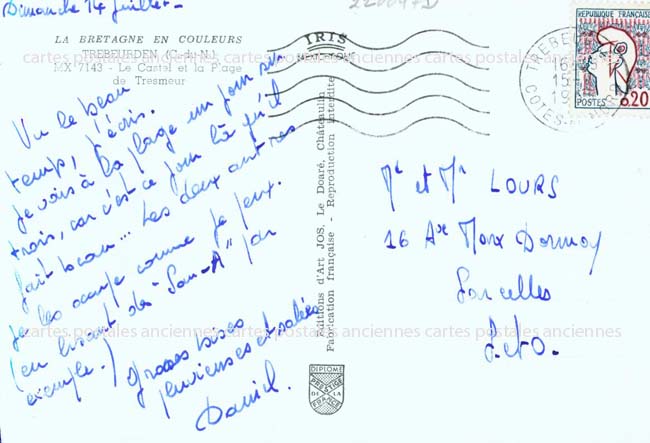 Dimanche 14 juillet -
220047D
LA BRETAGNE EN COULEURS
TREBEURDEN (C.-du-N.)
MX 7143 - Le Castel et la Plage
de Tresmeur
IRIS
REPUBLIQUE FRANÇAISE
POSTES 0,20
cartes postales anciennes cartes postales anciennes cartes postales anciennes
Vu le beau
temps, j'écris.
Je vais à la plage un jour sur
trois, car c'est ce jour là qu'il
fait beau... Les deux autres
je les occupe comme je peux.
(en lisant des "San-A" par
exemple.)
grosses bises
pluvieuses et salées
Daniel.
Editions d'Art JOS, Le Doaré, Châteaulin
Fabrication française - Reproduction interdite
Mr et Me LOURS
16 Ave Marx Dormoy
Sarcelles
S.et.O.
cartes postales anciennes cartes postales anciennes cartes postales anciennes
DIPLOME
PRESTIGE
DE LA
FRANCE